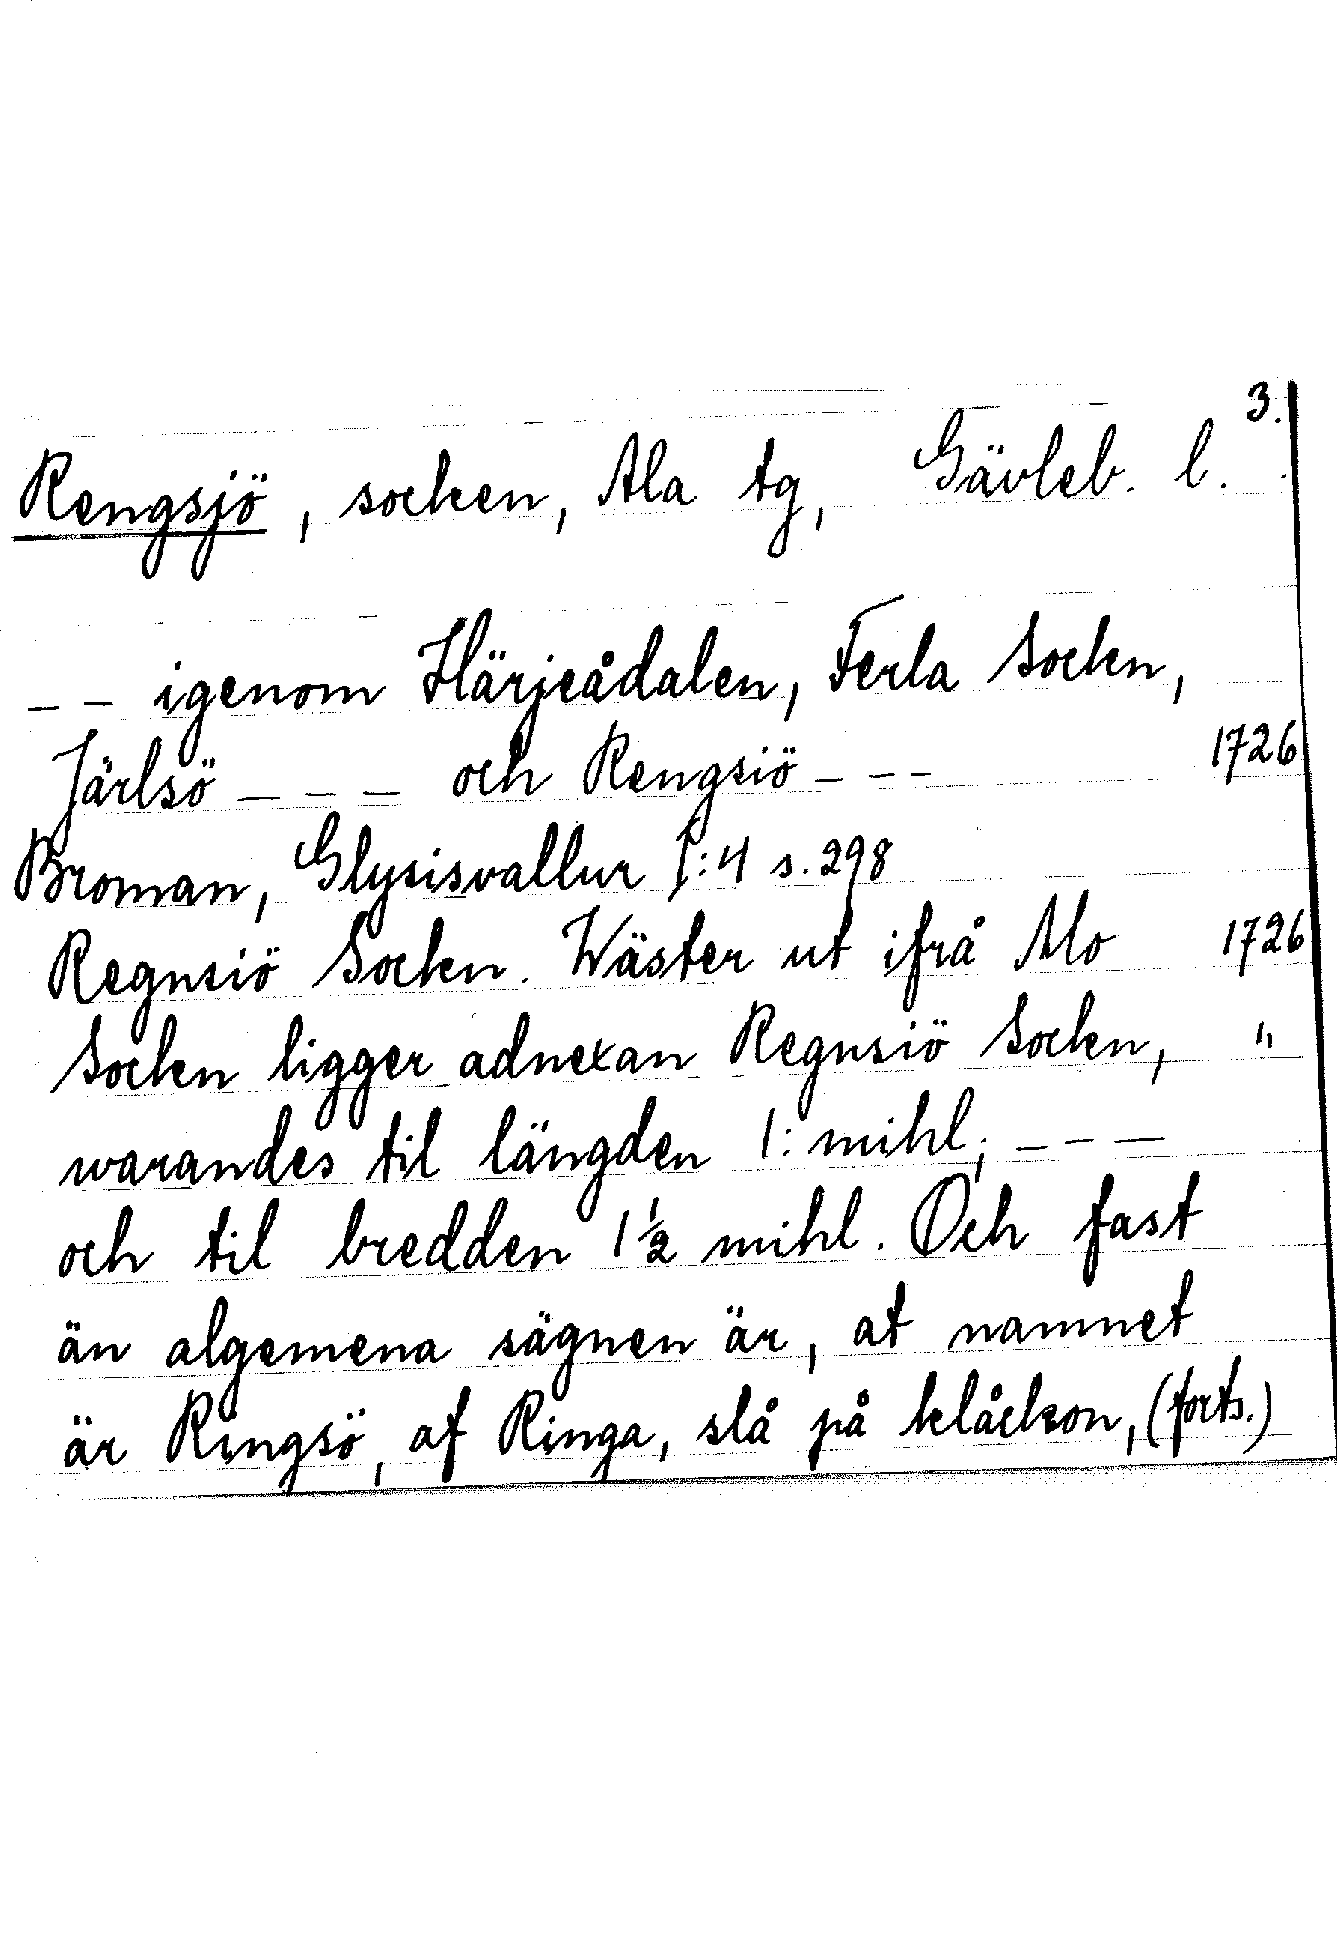 3.
Rengsjö, socken, Ala tg, Gävleb. l.
_ _ igenom Härjeådalen, Ferla Sockn,
Järlsö _ _ _ och Rengsiö _ _ _ 1726
Broman, Glysisvallur I:4 s. 298
Regnsiö Sockn. Wäster ut ifrå Mo 1726
Sockn ligger adnexan Regnsiö Sockn, "
warandes til längden 1: mihl; _ _ _
och til bredden 1 1/2 mihl. Och fast
än algemena sägnen är, at namnet
är Ringsö, af Ringa, slå på klåckon, (forts.)